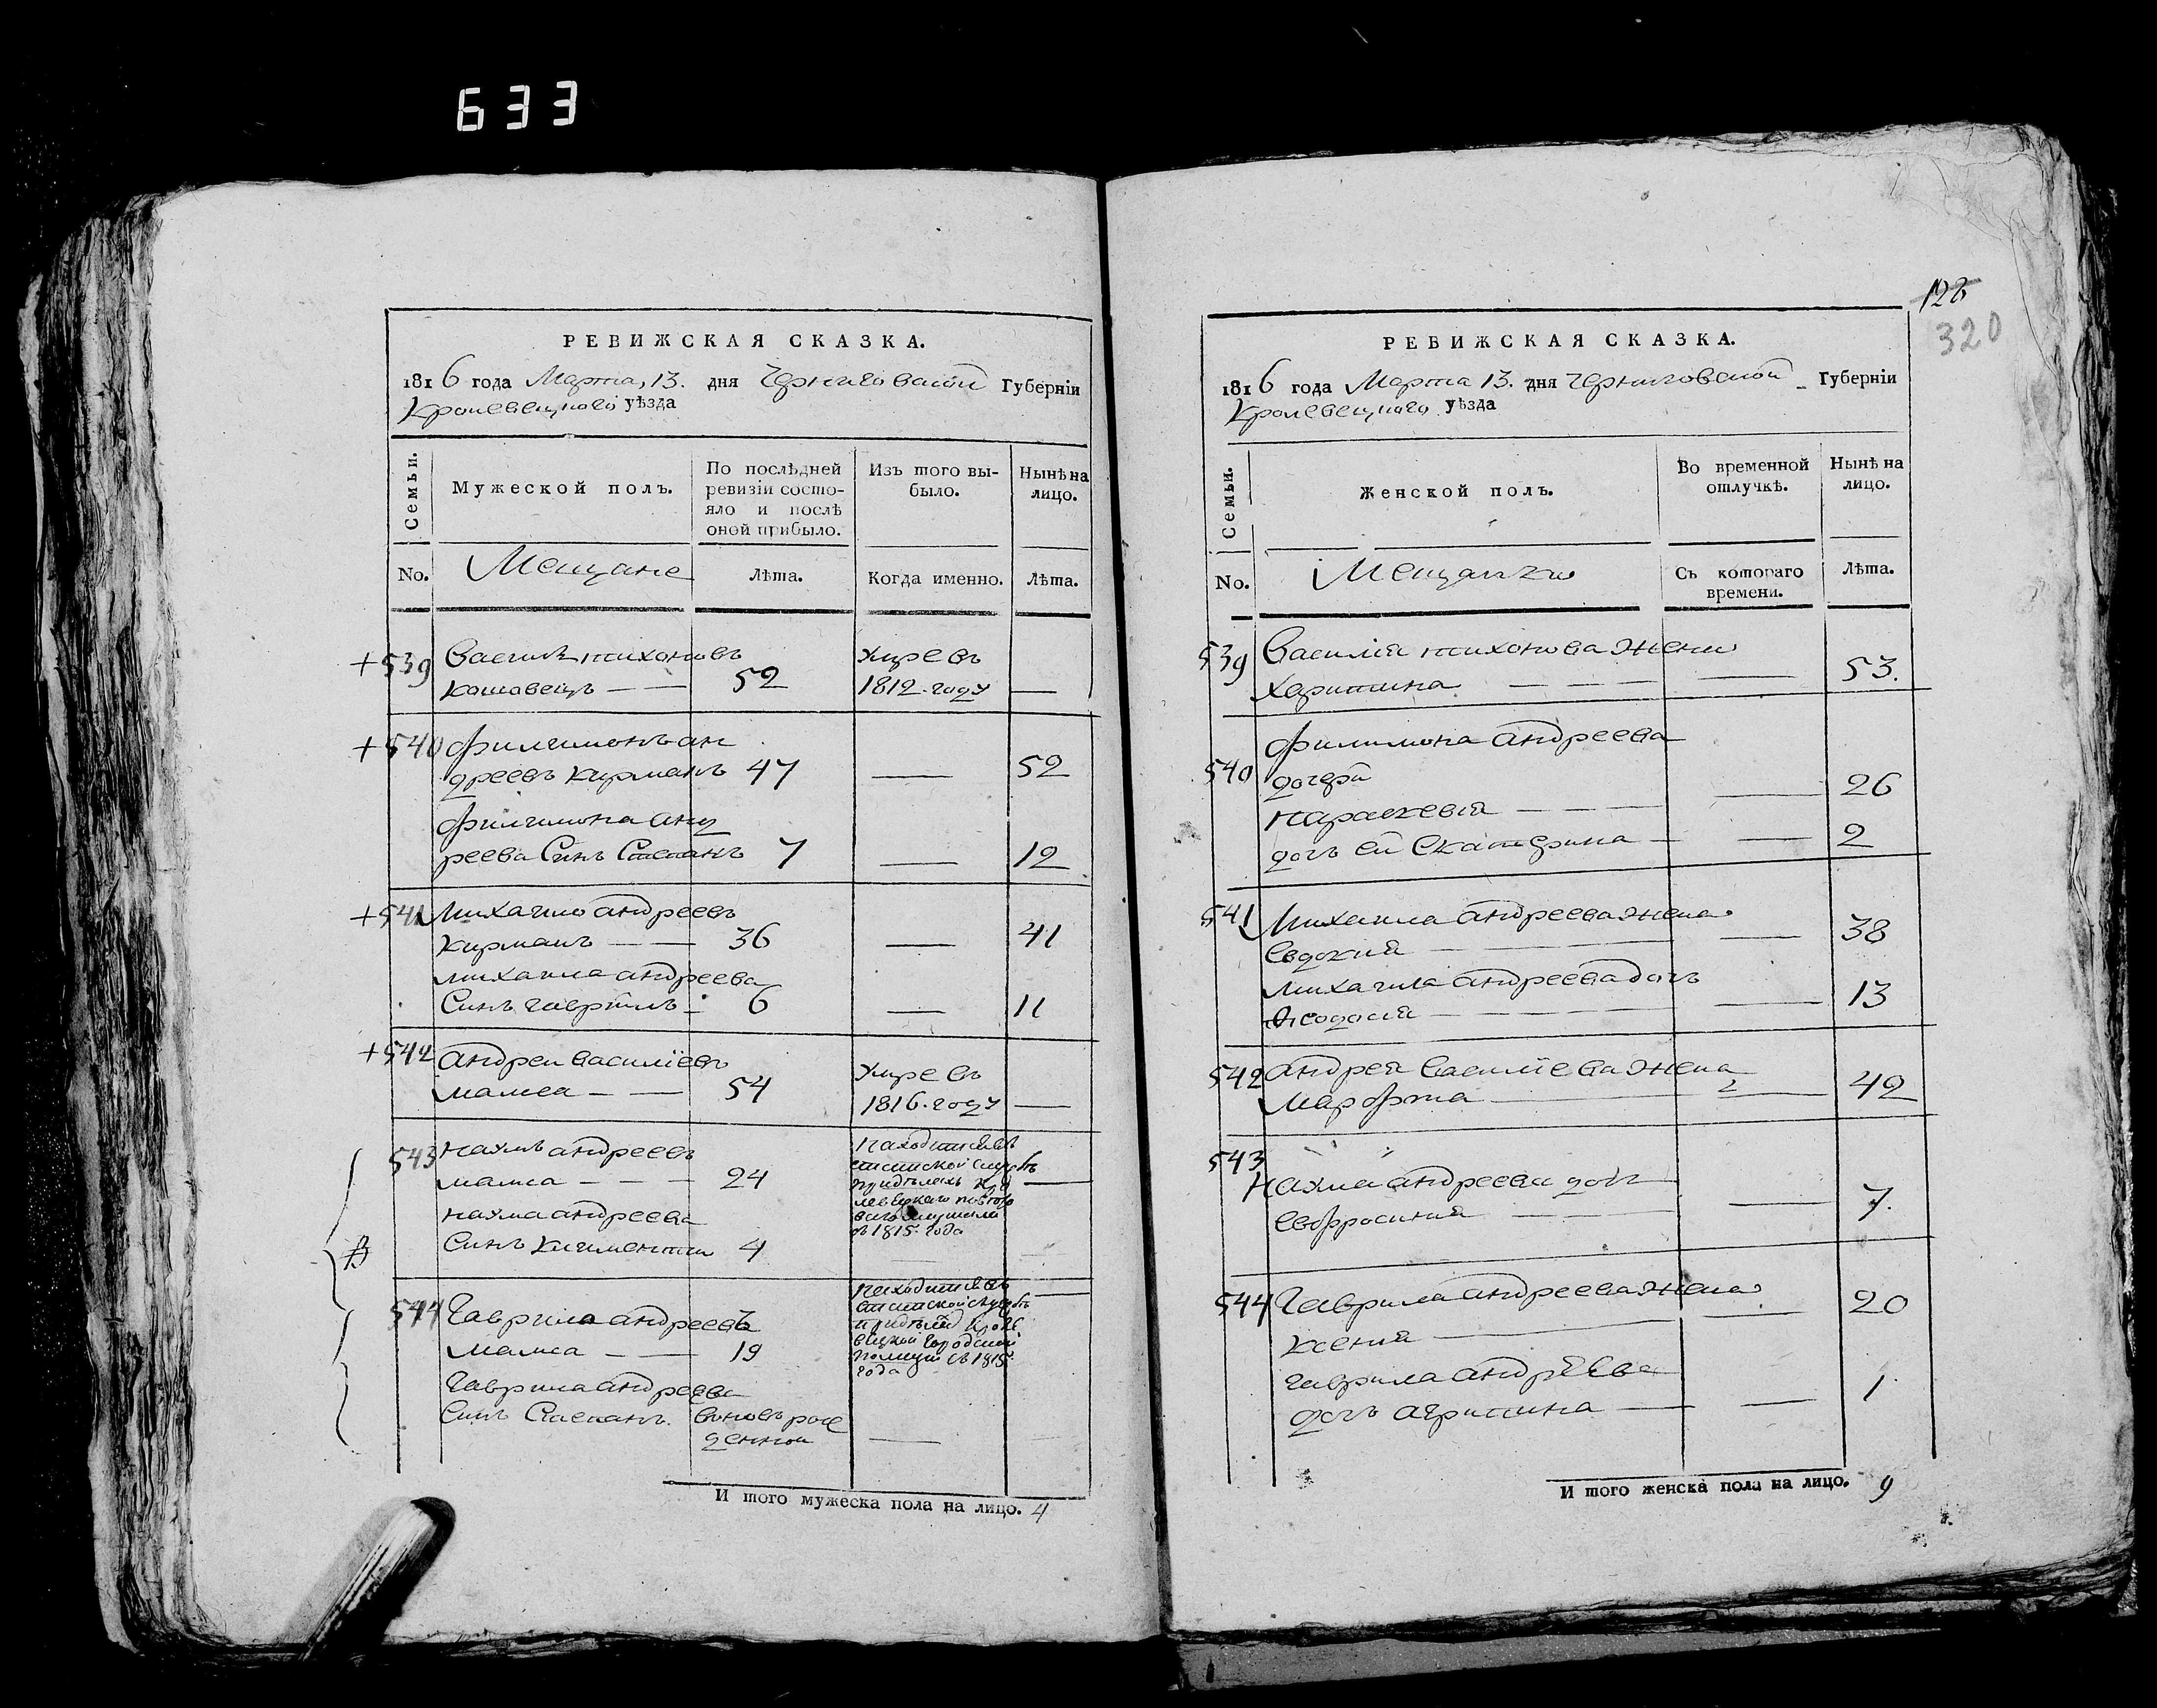 633
РЕВИЖСКАЯ СКАЗКА.
1816 года Марта, 13. дня Черниговской Губерніи
Кролевецкого уѣзда
Семьи.
Мужеской полъ.
По послѣдней
ревизіи состо-
яло и послѣ
оной прибыло.
Изъ того вы-
было.
Нынѣ на
лицо.
No.
Мещане
Лѣта.
Когда именно.
Лѣта.
+539 Василь тихоновъ
52
умре въ
1812. году —
+540 Филимонъ ан
дреевъ 47 — 52
Филимона анд
реева Синъ Степанъ 7 — 12
+541 Михайло андреевъ
36 — 41
михаила андреева
Синъ гаврїилъ 6 — 11
+542 андрей василїевъ
54
умре въ
1816. году —
543 наумъ андреевъ
24
наума андреева
Синъ 4
находится въ
службѣ
съ 1815. года
544 Гаврило андреевъ
19
Гаврила андреева
Синъ Степанъ. вновъ рож
денной —
находится въ
службѣ
городской
полиции съ 1815.
года
И того мужеска пола на лицо. 4
128
320
РЕВИЖСКАЯ СКАЗКА.
1816 года Марта 13. дня Черниговской Губерніи
Кролевецкого уѣзда
Семьи.
Женской полъ.
Во временной
отлучкѣ.
Нынѣ на
лицо.
No.
Мещанки
Съ котораго
времени.
Лѣта.
539 Василія тихонова жена
харитина — 53.
540 Филимона андреева
дочери
параскевія — 26
дочъ ей Екатерина — 2
541 Михаила андреева жена
Евдокия — 38
михаила андреева дочъ
Ѳеодосия — 13
542 андрея василїева жена
Марфа — 42
543
Наума андреева дочъ
евфросиния — 7.
544 Гаврила андреева жена
ксения — 20
гаврила андреева
дочъ агрипина — 1.
И того женска пола на лицо. 9